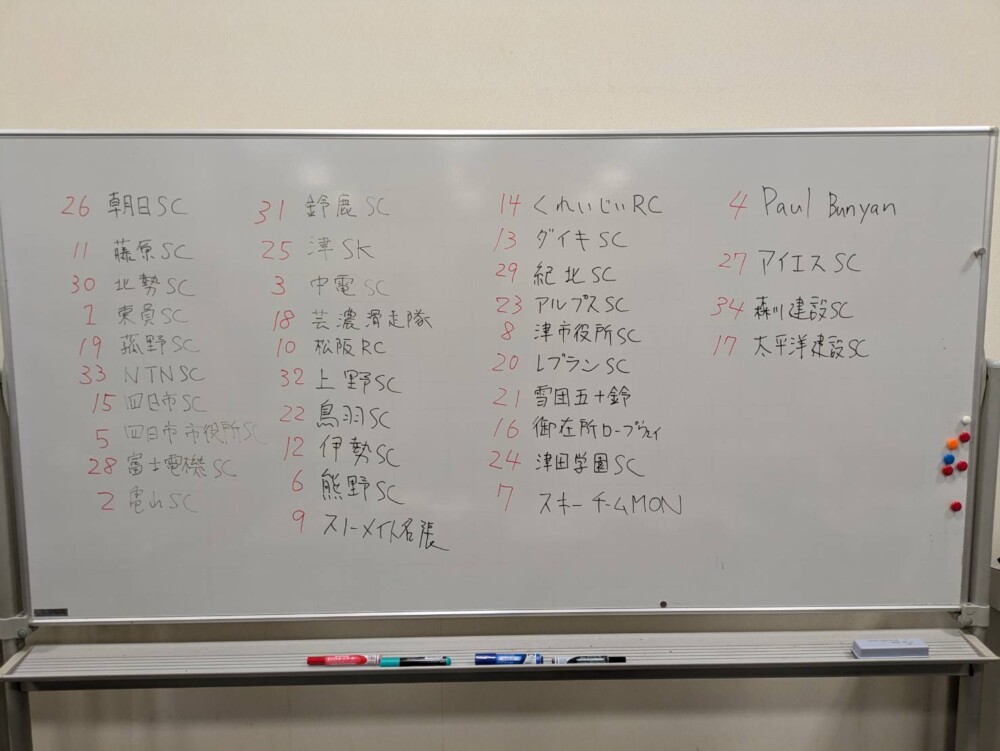 26 朝日SC
11 藤原SC
30 北勢SC
1 東員SC
19 菰野SC
33 NTNSC
15 四日市SC
5 四日市市役所SC
28 富士電機SC
2 亀山SC
31 鈴鹿SC
25 津SK
3 中電SC
18 芸濃滑走隊
10 松阪RC
32 上野SC
22 鳥羽SC
12 伊勢SC
6 熊野SC
9 スノーメイト名張
14 くれいじぃRC
13 ダイキSC
29 紀北SC
23 アルプスSC
8 津市役所SC
20 レブランSC
21 雪団五十鈴
16 御在所ロープウェイ
24 津田学園SC
7 スキーチームMON
4 Paul Bunyan
27 アイエスSC
34 森川建設SC
17 太平洋建設SC